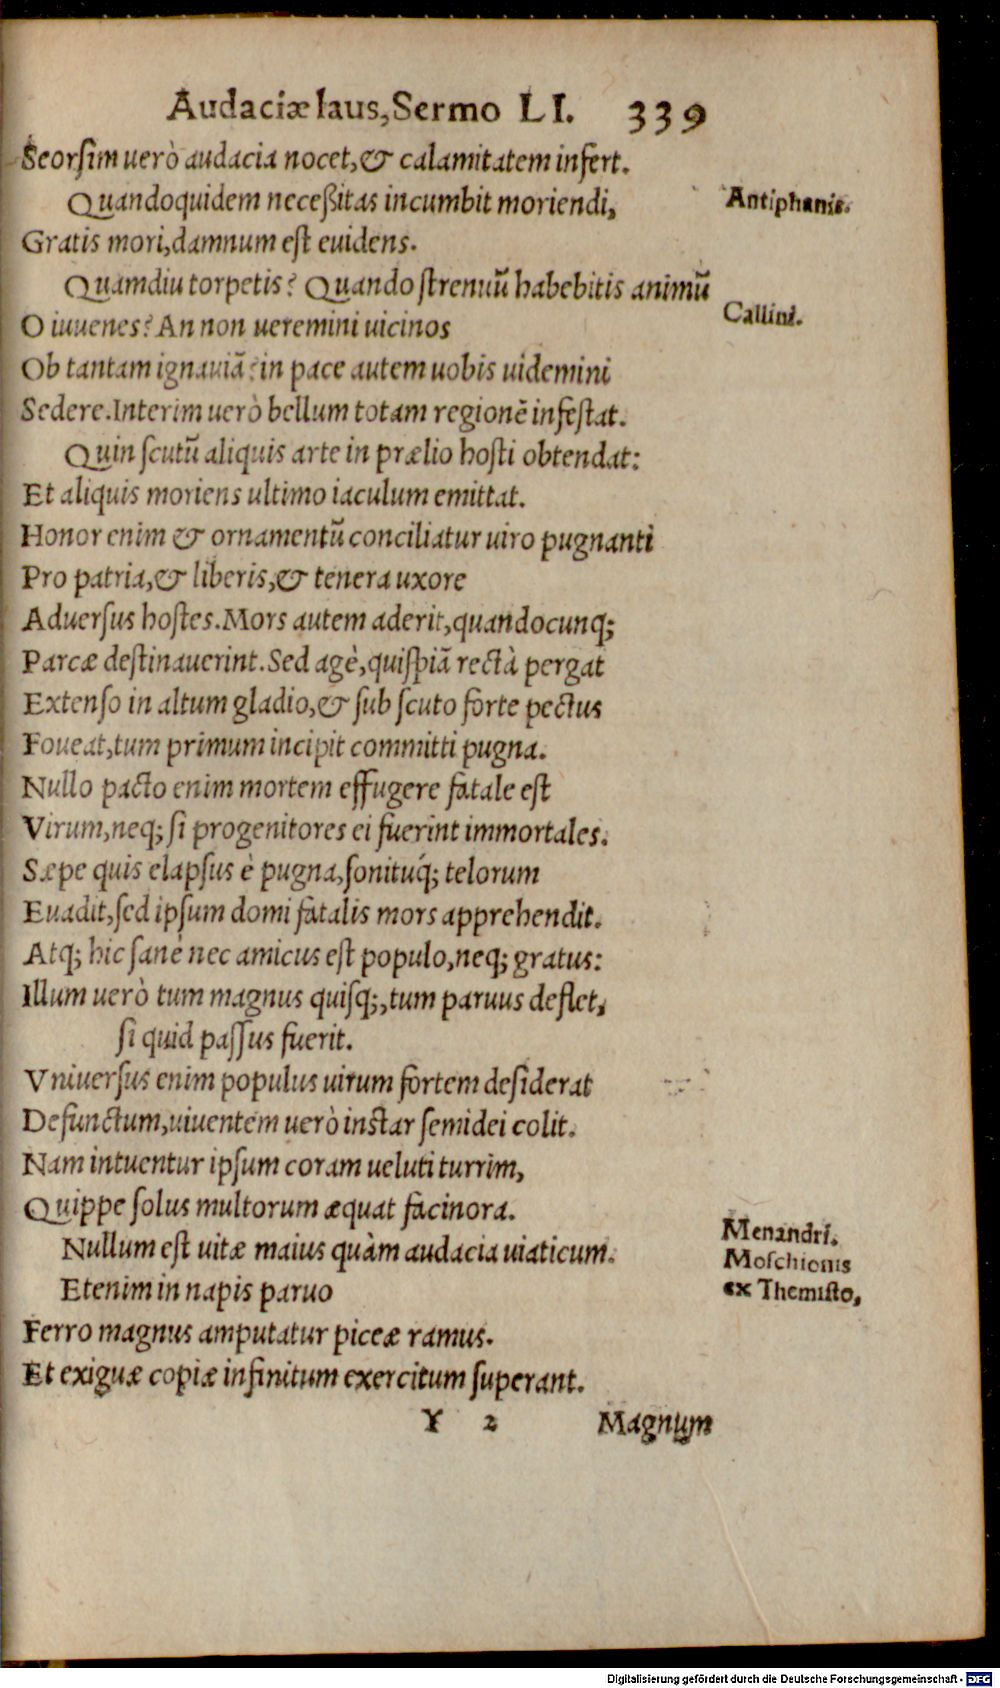 Audaciæ laus, Sermo LI. 339
Seorſim uerò audacia nocet, & calamitatem infert.
Quandoquidem neceßitas incumbit moriendi,
Antiphanis.
Gratis mori, damnum eſt euidens.
Quamdiu torpetis? Quando ſtrenuũ habebitis animũ
Callini.
O iuuenes? An non ueremini uicinos
Ob tantam ignauiã? in pace autem uobis uidemini
Sedere. Interim uerò bellum totam regionẽ infeſtat.
Quin ſcutũ aliquis arte in prælio hoſti obtendat:
Et aliquis moriens ultimo iaculum emittat.
Honor enim & ornamentũ conciliatur uiro pugnanti
Pro patria, & liberis, & tenera uxore
Aduerſus hoſtes. Mors autem aderit, quandocunq;
Parcæ deſtinauerint. Sed agè, quiſpiã rectà pergat
Extenſo in altum gladio, & ſub ſcuto forte pectus
Foueat, tum primum incipit committi pugna.
Nullo pacto enim mortem effugere fatale eſt
Virum, neq; ſi progenitores ei fuerint immortales.
Sæpe quis elapſus è pugna, ſonituq́; telorum
Euadit, ſed ipſum domi fatalis mors apprehendit.
Atq; hic ſanè nec amicus eſt populo, neq; gratus:
Illum uerò tum magnus quiſq;, tum paruus deflet,
ſi quid paſſus fuerit.
Vniuerſus enim populus uirum fortem deſiderat
Defunctum, uiuentem uerò inſtar ſemidei colit.
Nam intuentur ipſum coram ueluti turrim,
Quippe ſolus multorum æquat facinora.
Nullum eſt uitæ maius quàm audacia uiaticum.
Menandri.
Moſchionis
ex Themiſto,
Etenim in napis paruo
Ferro magnus amputatur piceæ ramus.
Et exiguæ copiæ infinitum exercitum ſuperant.
Y 2 Magnum
Digitalisierung gefördert durch die Deutsche Forschungsgemeinschaft - DFG